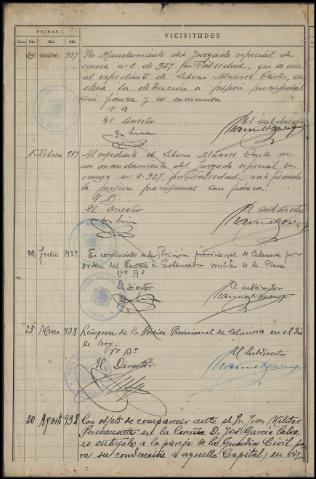 FECHAS
VICISITUDES
Núm. Día. Mes. Año.
937 Por Mandamiento del Juzgado especial de
causa nº 2 de 937 por Falsedad, que se une
al expediente de
eleva la detención a prisión provisional
sin fianza y se comunica
Vº Bº
El Director El subdirector
Febrero 937 Al expediente de
un mandamiento del Juzgado especial en
causa nº 2-937 por Falsedad, ratificando
la prisión provisional sin fianza.
Vº Bº
El Director El subdirector
22 Julio 937 Es conducido a la Prisión provisional de Celanova por
orden del Excmo. Sr. Gobernador militar de la Plaza
Vº Bº
El Director El subdirector
25 Marzo 938 Reingresa de la Prisión Provisional de Celanova en el día
de hoy.
Vº Bº
El Director El Subdirector
20 Agosto 938 Con objeto de comparecer ante el Sr. Juez Militar
Permanente en la Coruña D. José García Calvo,
es entregado a la pareja de la Guardia Civil para
su conducción a aquella Capital; en